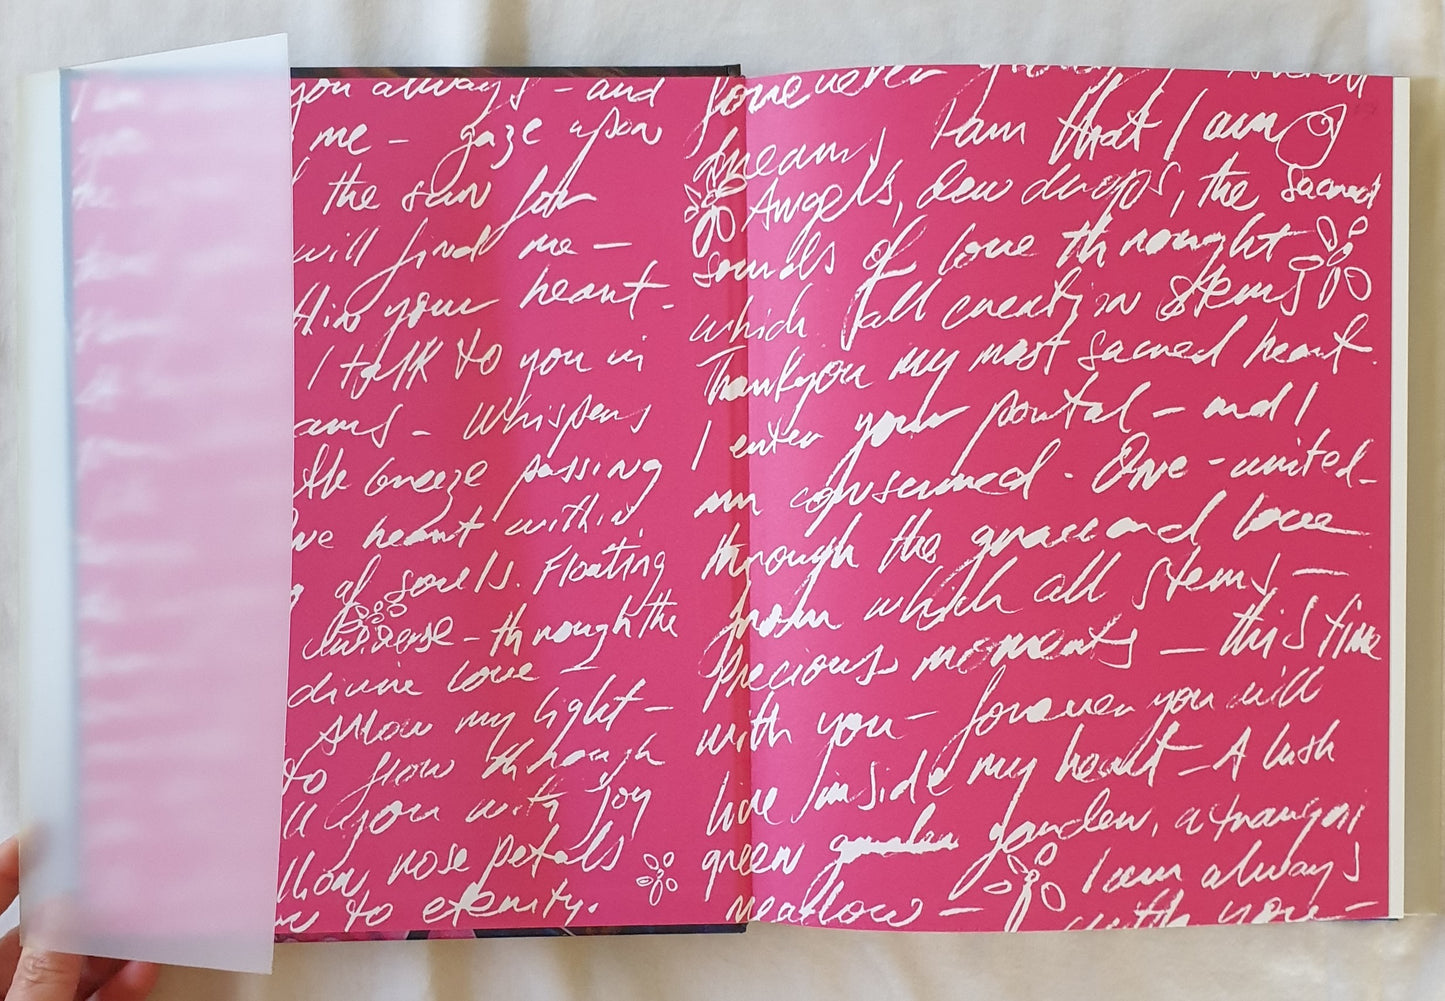 you always - and
me - gaze upon
the sun for
will find me -
thin your heart -
I talk to you in
ams - whispers
the breeze passing
ve heart within,
g of souls. Floating
universe - through the
divine love -
Allow my light -
to flow through
ll you with joy
llion, rose petals
to eternity.
forever
dreams, I am that I am
Angels, dew drops, the sacred
sounds of love throught
which all creation stems
Thankyou my most sacred heart.
I enter your portal - and I
am consumed - One - united -
through the grace and love
from which all stems -
Precious moments - this time
with you - forever you will
live inside my heart - A lush
green garden, a tranquil
meadow - I am always
with you -